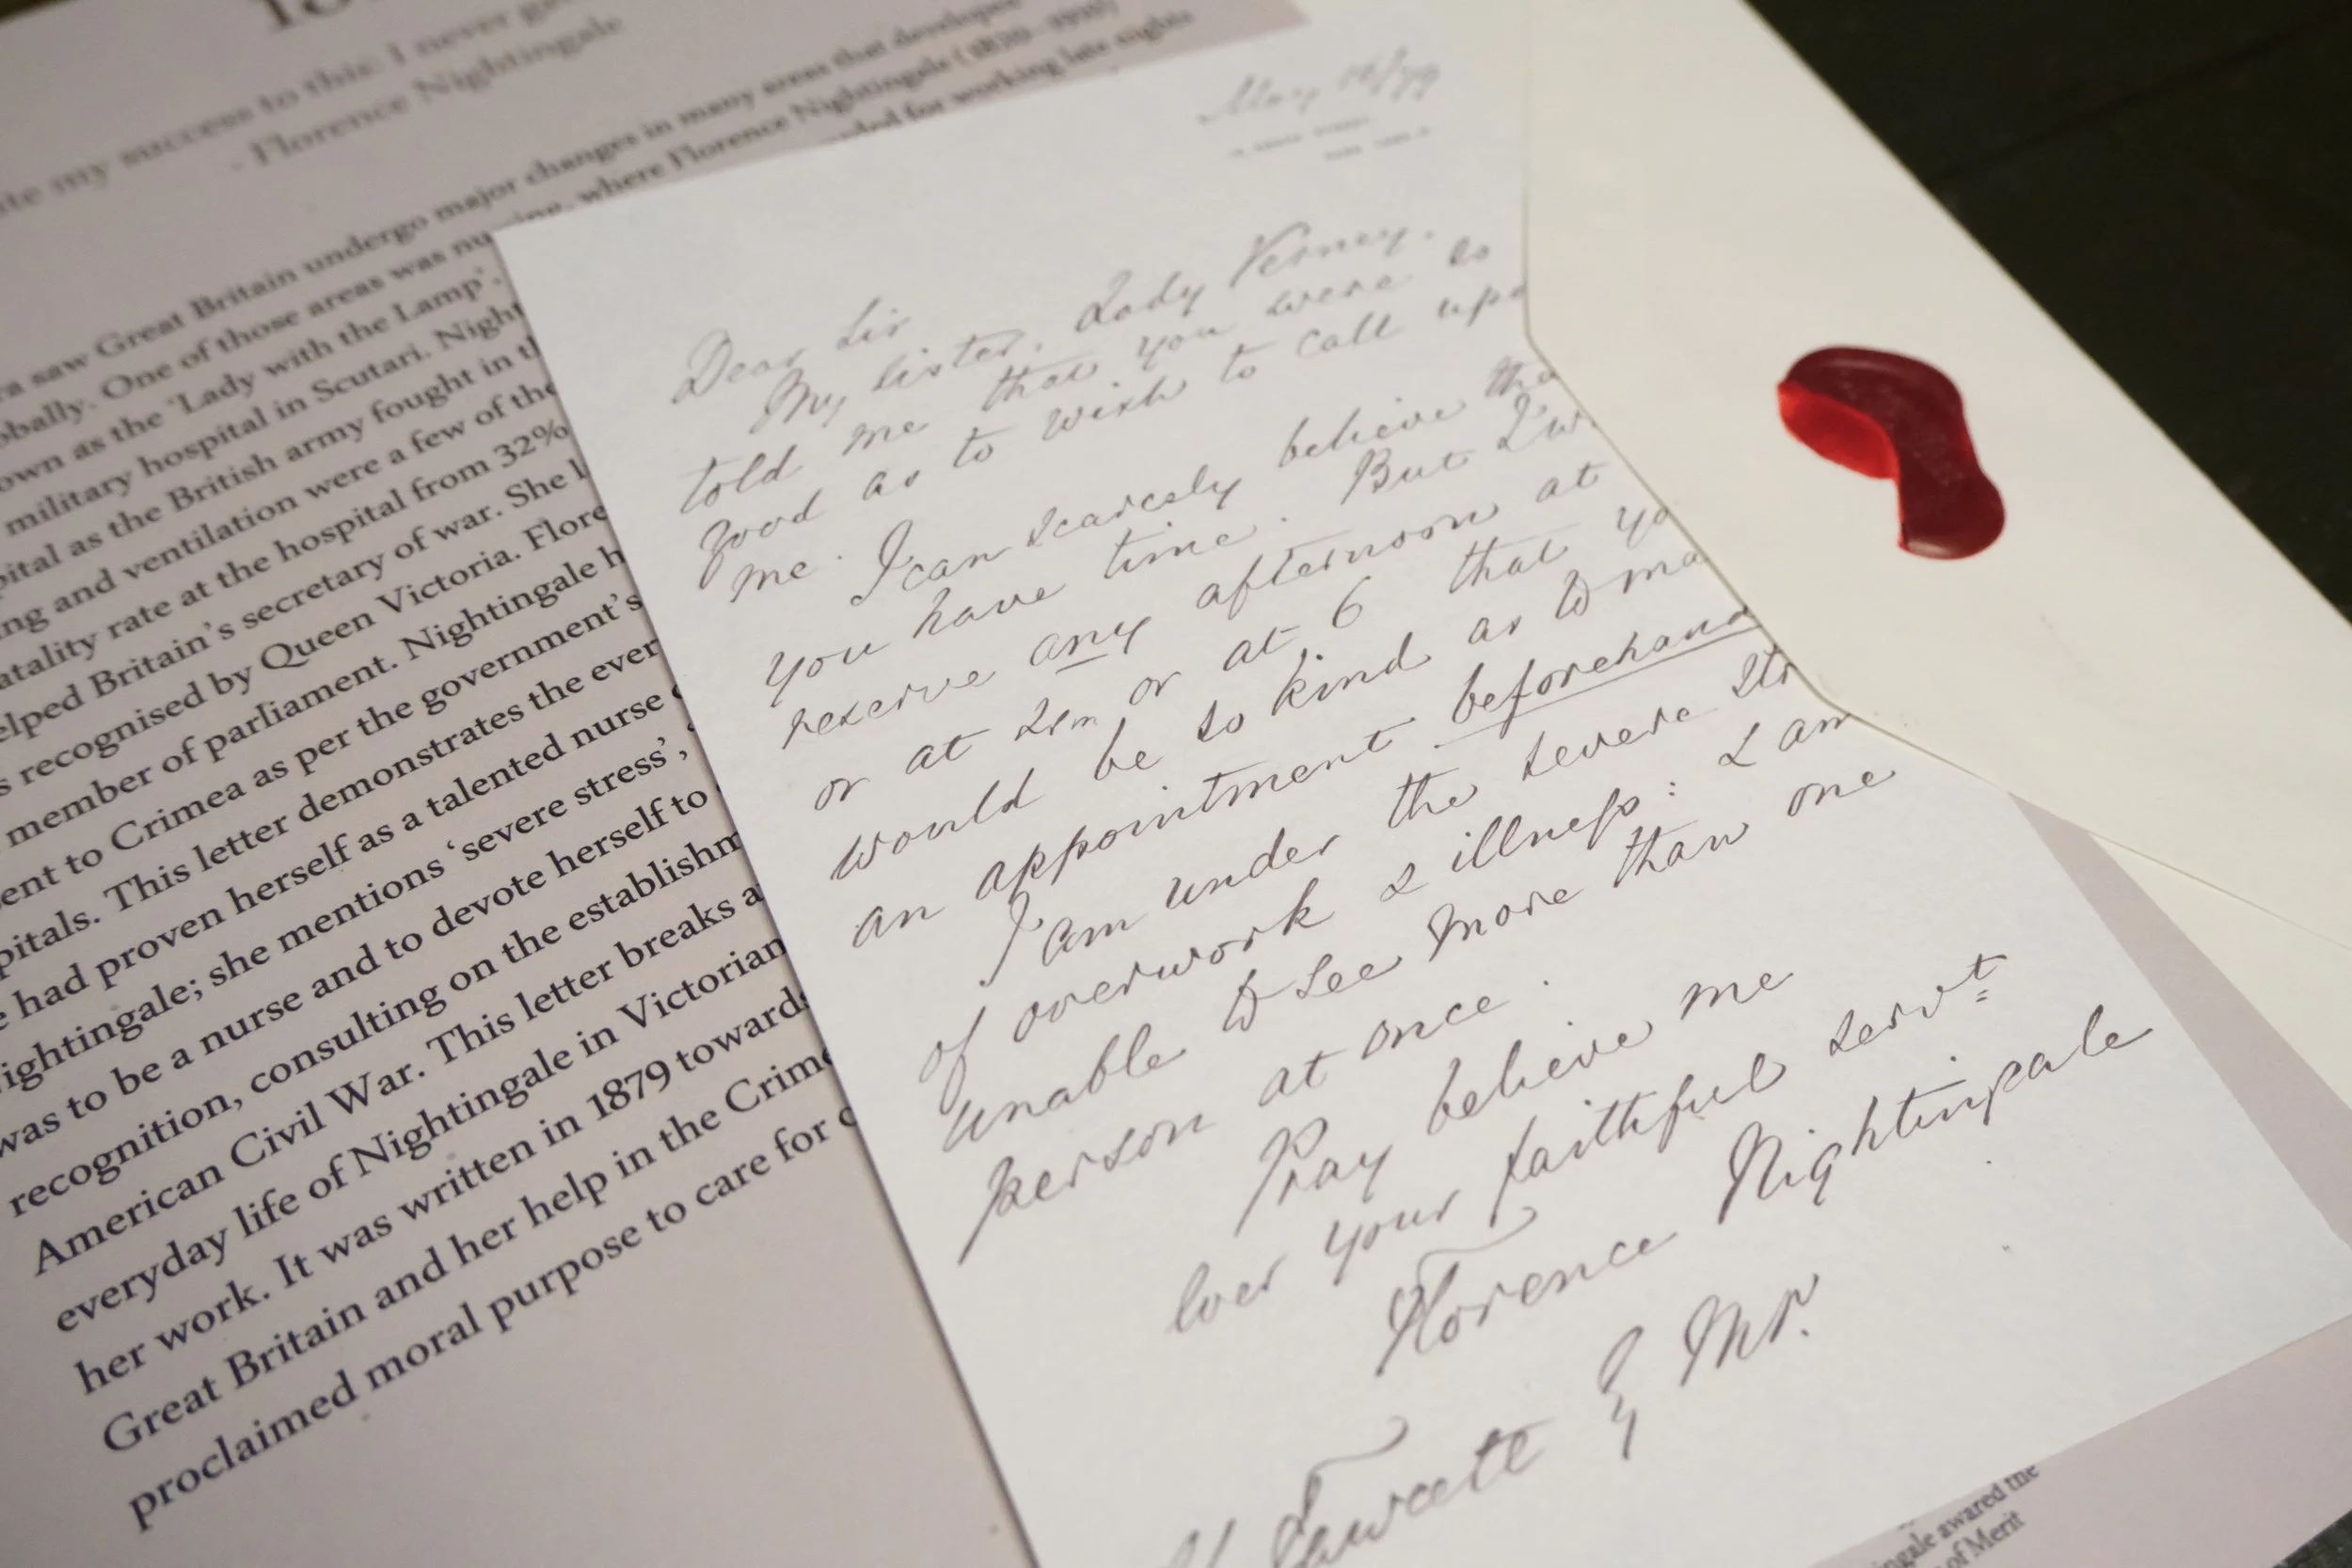 my success to this: I never
- Florence Nightingale
saw Great Britain undergo major changes in many areas that
One of those areas was where Florence Nightingale (1820-1910)
as the 'Lady with the Lamp'. for working late nights
military hospital in Scutari.
as the British army fought in
and ventilation were a few of the
rate at the hospital from 32%
Britain's secretary of war. She
recognised by Queen Victoria.
member of parliament. Nightingale
to Crimea as per the government's
This letter demonstrates the
had proven herself as a talented nurse
she mentions 'severe stress',
was to be a nurse and to devote herself to
recognition, consulting on the
American Civil War. This letter breaks
everyday life of Nightingale in Victorian
her work. It was written in 1879
Great Britain and her help in the
proclaimed moral purpose to care for
May 16/79
Dear Sir
My sister, Lady Verney.
told me that you were so
good as to wish to call
me. I can scarcely believe
you have time. But I
reserve any afternoon at
or at or at 6 that
would be so kind as to
an appointment beforehand
I am under the severe
of overwork & illness: & am
unable to see more than one
person at once.
Pray believe me
ever your faithful servt
Florence Nightingale
Fawcett Esq MP.
awared the
of Merit